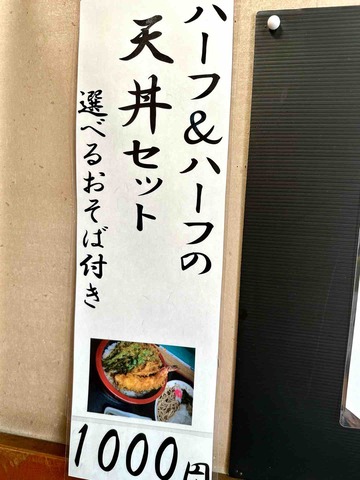 ハーフ&ハーフの
天丼セット
選べるおそば付き
1000円